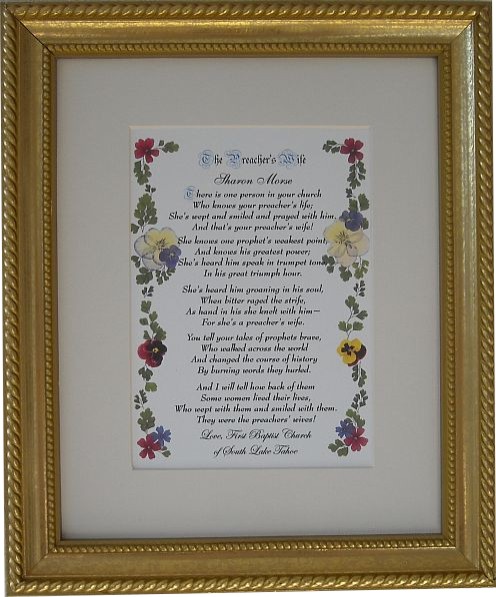 The Preacher's Wife
Sharon Morse
There is one person in your church
Who knows your preacher's life;
She's wept and smiled and prayed with him,
And that's your preacher's wife!
She knows one prophet's weakest point,
And knows his greatest power;
She's heard him speak in trumpet tone,
In his great triumph hour.
She's heard him groaning in his soul,
When bitter raged the strife,
As hand in his she knelt with him—
For she's a preacher's wife.
You tell your tales of prophets brave,
Who walked across the world
And changed the course of history
By burning words they hurled.
And I will tell how back of them
Some women lived their lives,
Who wept with them and smiled with them.
They were the preachers' wives!
Love, First Baptist Church
of South Lake Tahoe